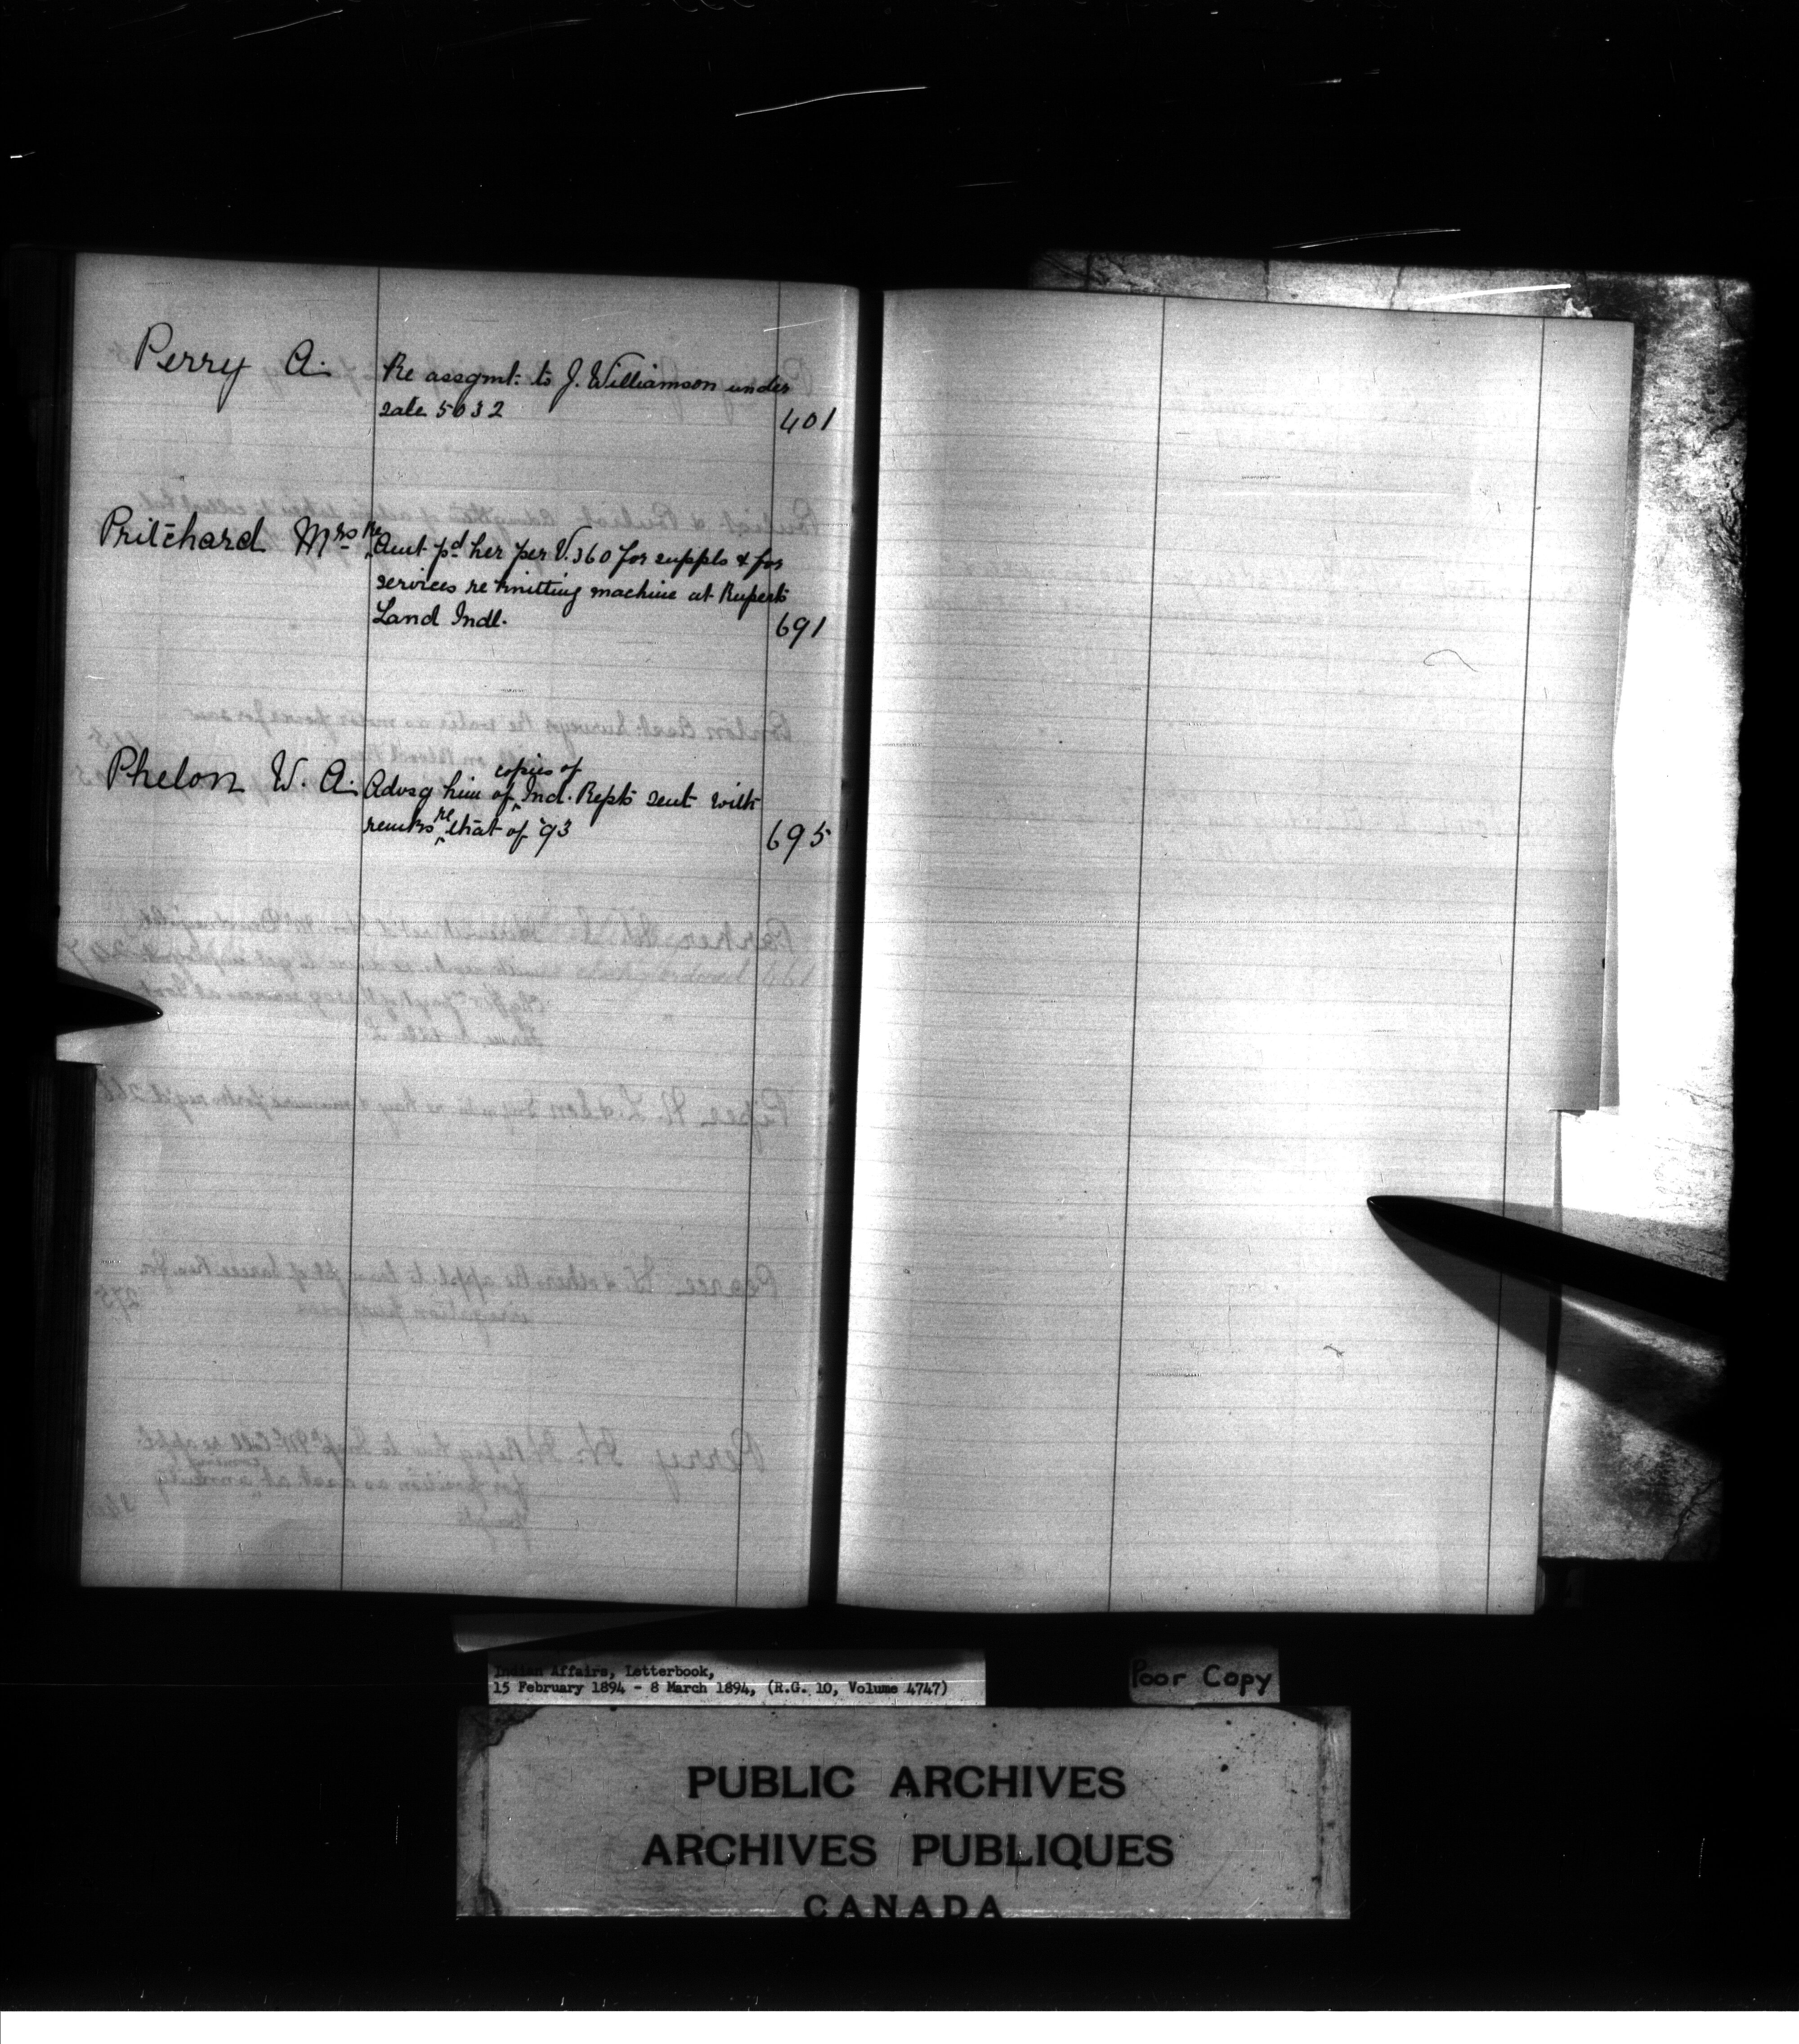 Perry A. Re assgmt. to J. Williamson under
sale 5032 401
Pritchard Mrs Re Amt pd her per V. 360 for suppls & for
services re Knitting machine at Ruperts
Land Indl. 691
Phelon W. A. Advsg him of copies of Ind. Repts sent with
remks re that of '93 695
Indian Affairs, Letterbook,
15 February 1894 - 8 March 1894, (R.G. 10, Volume 4747)
Poor Copy
PUBLIC ARCHIVES
ARCHIVES PUBLIQUES
CANADA